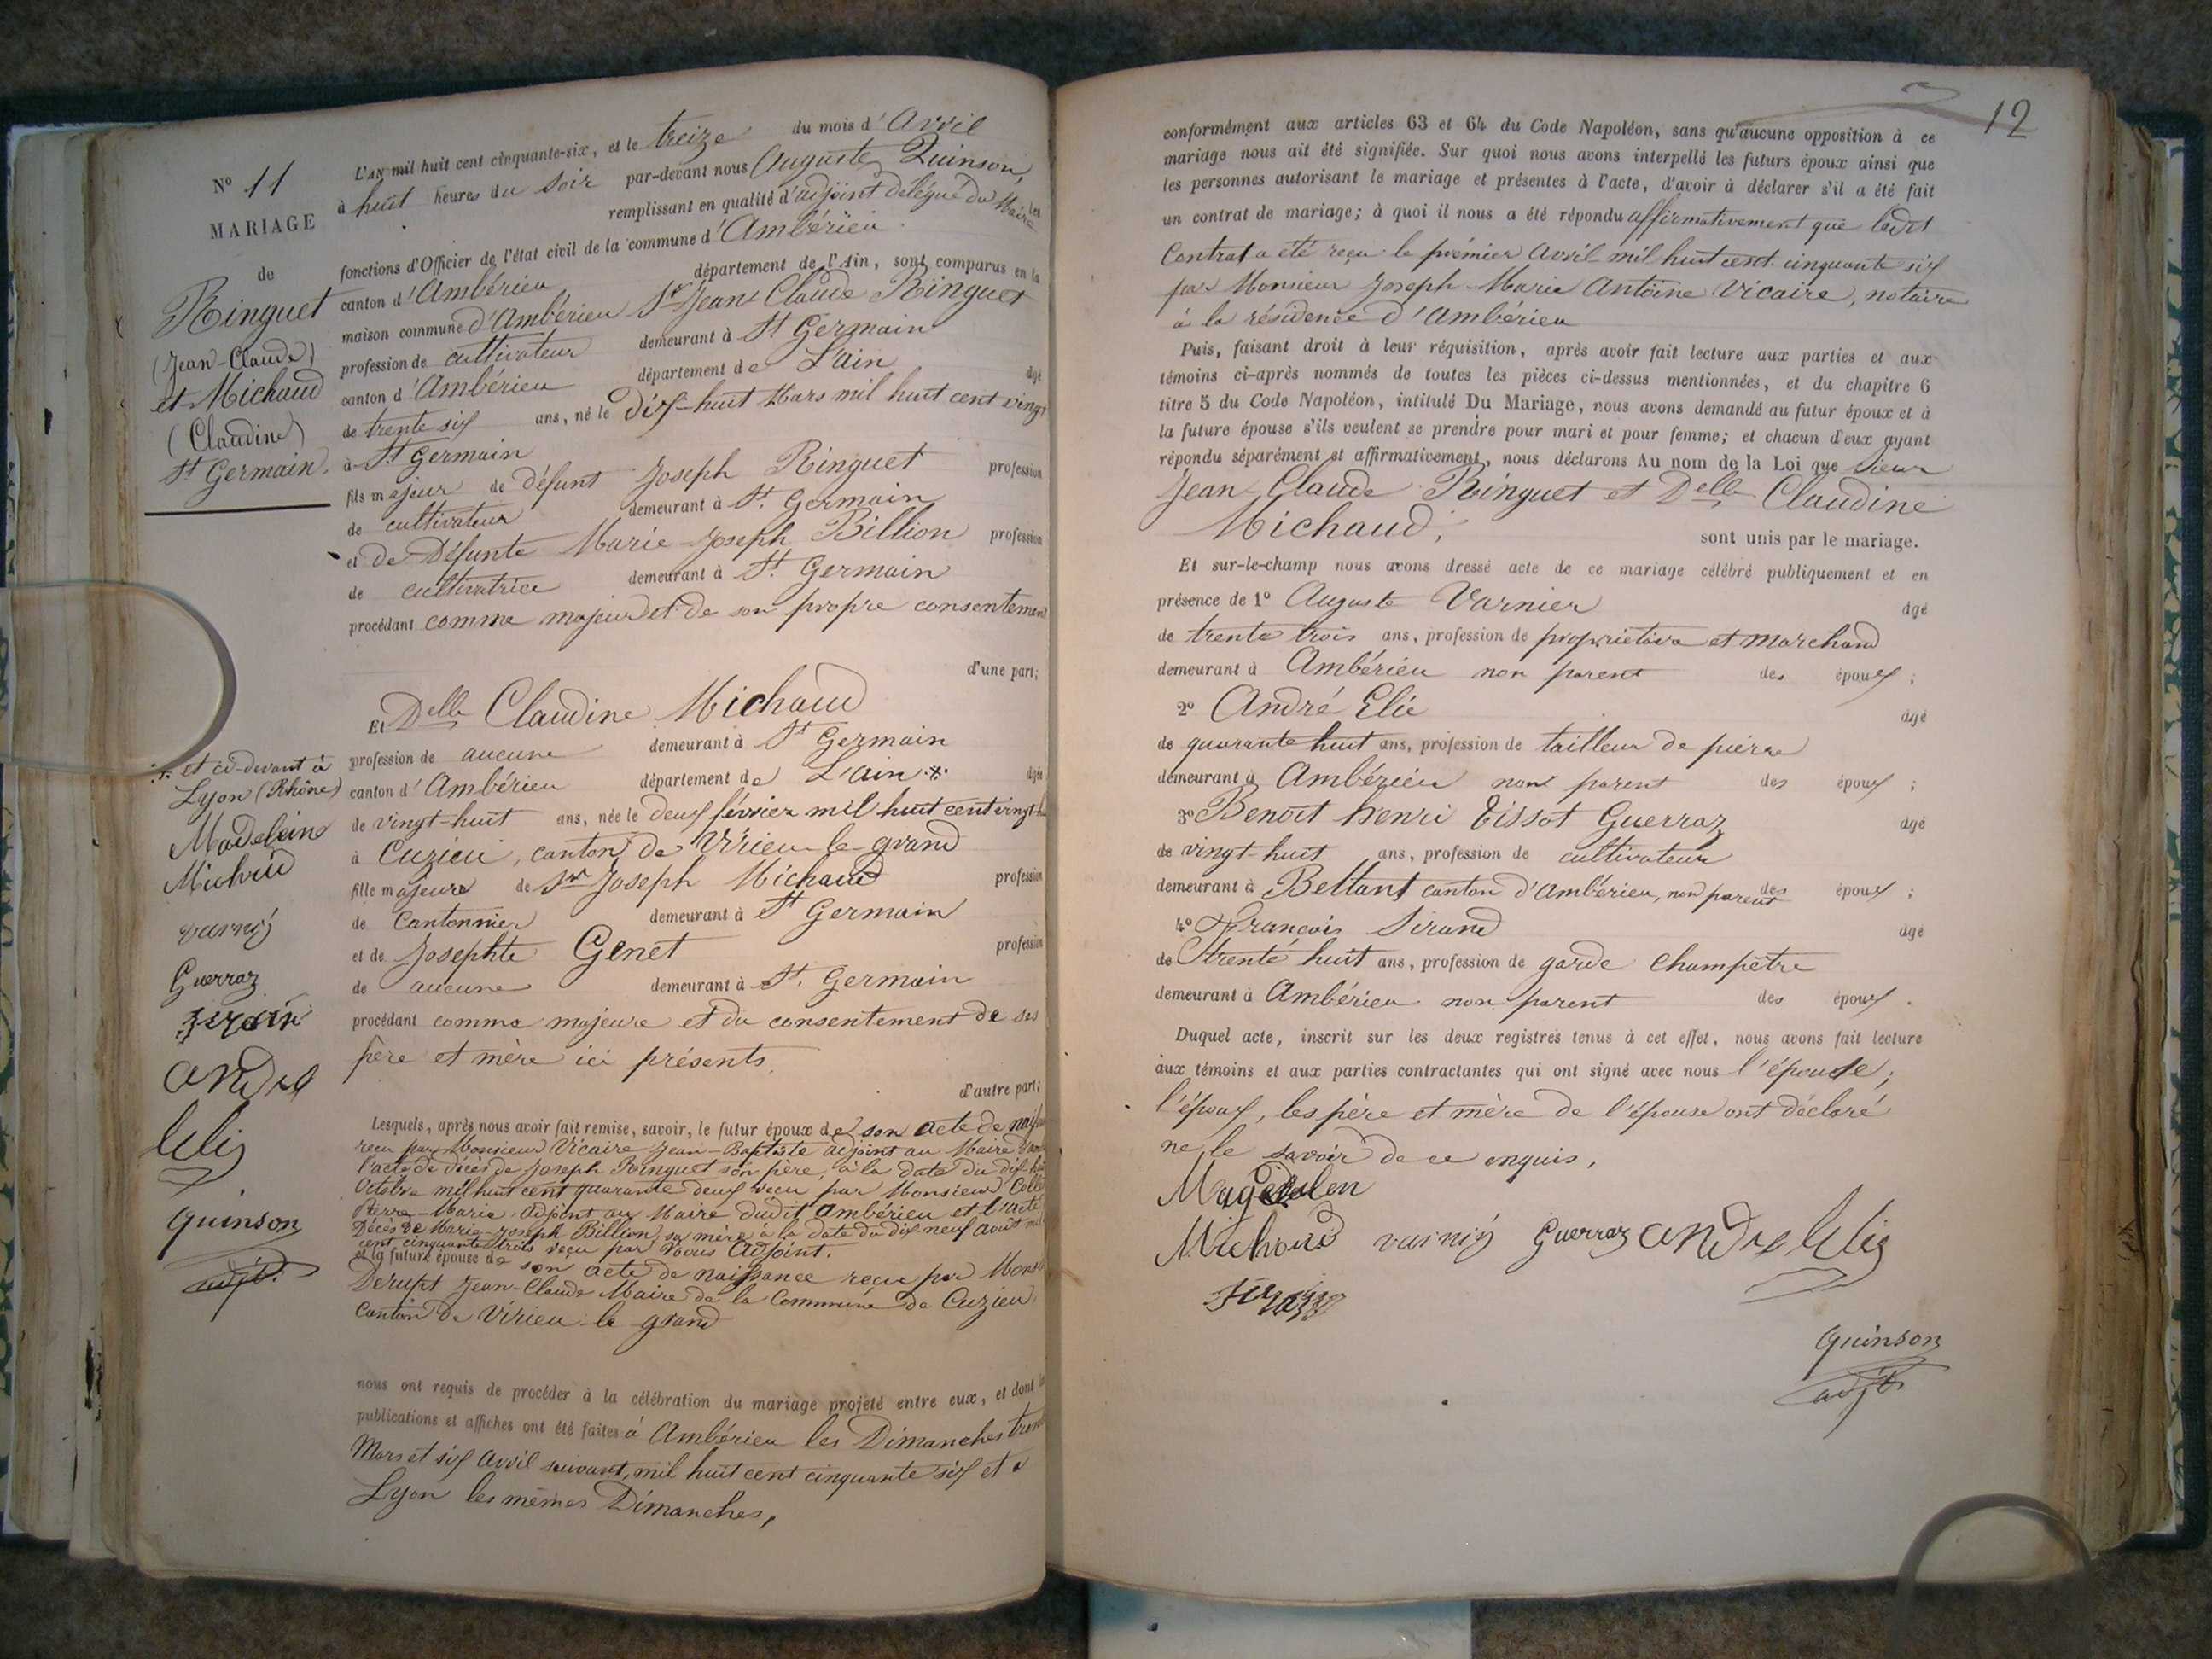 N° 11
MARIAGE
de
Ringuet
(Jean-Claude)
et Michaud
(Claudine)
St Germain.
L'AN mil huit cent cinquante-six, et le treize du mois d'Avril
à huit heures du soir par-devant nous Auguste Quinson,
remplissant en qualité d'adjoint délégué du Maire les
fonctions d'Officier de l'état civil de la commune d'Ambérieu
canton d'Ambérieu département de l'Ain, sont comparus en la
maison commune d'Ambérieu Sr Jean Claude Ringuet
profession de cultivateur demeurant à St Germain
canton d'Ambérieu département de L'ain âgé
de trente six ans, né le dix-huit Mars mil huit cent vingt
à St Germain
fils majeur de défunt Joseph Ringuet profession
de cultivateur demeurant à St Germain
et de Défunte Marie Joseph Billion profession
de cultivatrice demeurant à St Germain
procédant comme majeur et de son propre consentement
d'une part;
Et Delle Claudine Michaud
profession de aucune demeurant à St Germain
canton d'Ambérieu département de L'ain .+. âgée
de vingt-huit ans, née le deux février mil huit cent vingt-
à Cuzieu, canton de Virieu-le-grand
fille majeure de Sr Joseph Michaud profession
de Cantonnier demeurant à St Germain
et de Josephte Genet profession
de aucune demeurant à St Germain
procédant comme majeure et du consentement de ses
père et mère ici présents,
d'autre part;
Lesquels, après nous avoir fait remise, savoir, le futur époux de son acte de
reçu par Monsieur Vicaire Jean-Baptiste adjoint au Maire
l'acte de décès de Joseph Ringuet son père, à la date du dix-
Octobre mil huit cent quarante deux reçu par Monsieur
Pierre-Marie, adjoint au Maire dudit Ambérieu et l'acte
Décès de Marie-Joseph Billion sa mère à la date du dix-neuf août mil
cent cinquante trois reçu par Nous Adjoint.
et la future épouse de son acte de naissance reçu par
Derupt Jean-Claude Maire de la Commune de Cuzieu
canton de Virieu le grand
nous ont requis de procéder à la célébration du mariage projeté entre eux, et dont
publications et affiches ont été faites à Ambérieu les Dimanches
Mars et six avril suivant, mil huit cent cinquante six et à
Lyon les mêmes Dimanches,
.+. et ci-devant à
Lyon (Rhône)
Madelein
Michud
varniy
Guerraz
andre
lelis
Quinson
adjt.
12
conformément aux articles 63 et 64 du Code Napoléon, sans qu'aucune opposition à ce
mariage nous ait été signifiée. Sur quoi nous avons interpellé les futurs époux ainsi que
les personnes autorisant le mariage et présentes à l'acte, d'avoir à déclarer s'il a été fait
un contrat de mariage; à quoi il nous a été répondu affirmativement que ledit
Contrat a été reçu le prémier Avril mil huit cent cinquante six
par Monsieur Joseph-Marie Antoine Vicaire, notaire
à la résidence d'Ambérieu
Puis, faisant droit à leur réquisition, après avoir fait lecture aux parties et aux
témoins ci-après nommés de toutes les pièces ci-dessus mentionnées, et du chapitre 6
titre 5 du Code Napoléon, intitulé Du Mariage, nous avons demandé au futur époux et à
la future épouse s'ils veulent se prendre pour mari et pour femme; et chacun d'eux ayant
répondu séparément et affirmativement, nous déclarons Au nom de la Loi que Sieur
Jean Claude Ringuet et Delle Claudine
Michaud, sont unis par le mariage.
Et sur-le-champ nous avons dressé acte de ce mariage célébré publiquement et en
présence de 1° Auguste Varnier âgé
de trente trois ans, profession de propriétaire et marchand
demeurant à Ambérieu non parent des époux ;
2° André Elie âgé
de quarante huit ans, profession de tailleur de pierre
demeurant à Ambérieu non parent des époux ;
3° Benoit henri Tissot Guerraz âgé
de vingt-huit ans, profession de cultivateur
demeurant à Bettant canton d'Ambérieu, non parent des époux ;
4° François Sirand âgé
de trente huit ans, profession de garde champêtre
demeurant à Ambérieu non parent des époux .
Duquel acte, inscrit sur les deux registres tenus à cet effet, nous avons fait lecture
aux témoins et aux parties contractantes qui ont signé avec nous l'épouse;
l'époux, les père et mère de l'épouse ont déclaré
ne le savoir de ce enquis.
Magdelen
Michoud varniy Guerraz andre lelis
Quinson
adjt